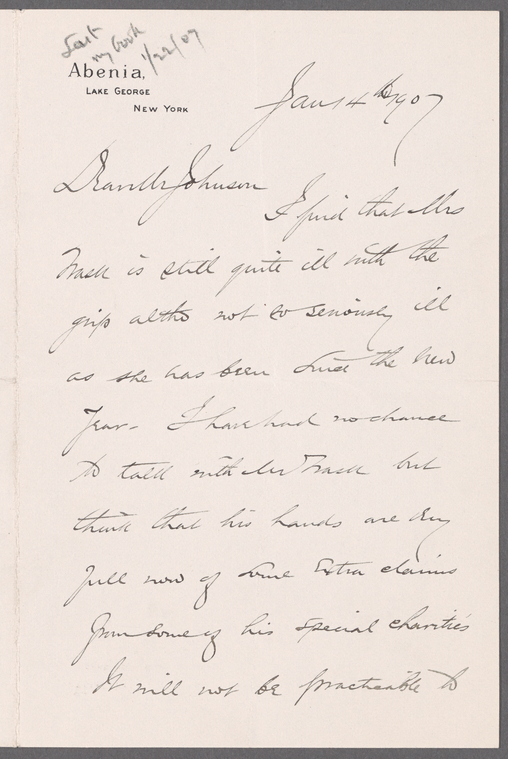 Sent
my book
1/22/07
Abenia,
LAKE GEORGE
NEW YORK
Jan 14th 1907
Dear Mr Johnson
I find that Mrs
Trask is still quite ill with the
grip altho not so seriously ill
as she has been since the New
Year - I have had no chance
to talk with Mr Trask but
think that his hands are very
full now of some extra claims
from some of his special charities
It will not be practicable to